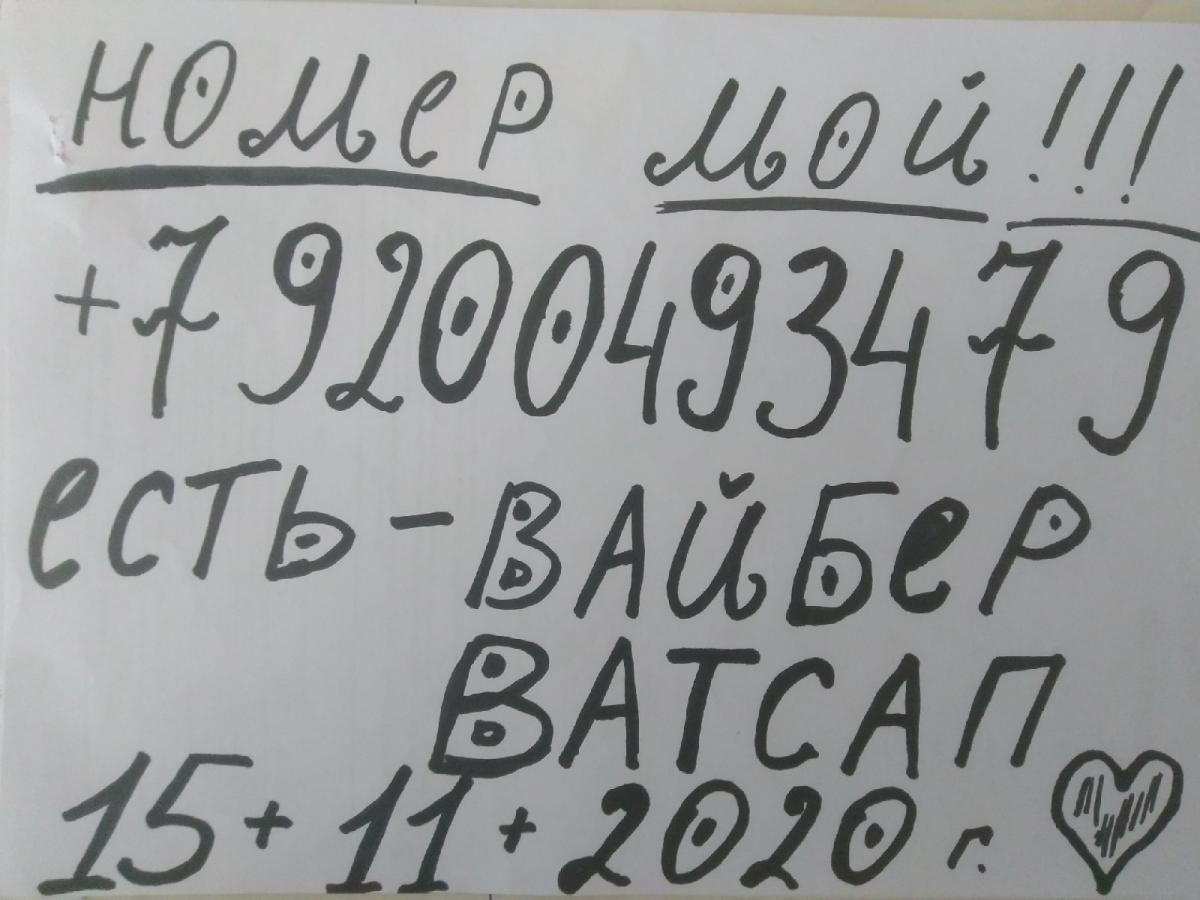 номер мой!!!
+79200493479
есть - ВАйБеР
ВАТСАП
15 + 11 + 2020 г.